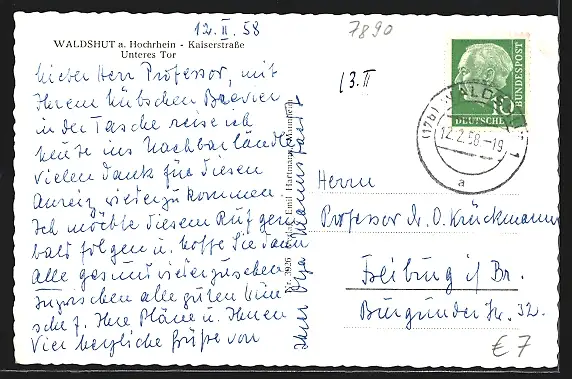 12.II.58
7890
WALDSHUT a. Hochrhein - Kaiserstraße
Unteres Tor
Lieber Herr Professor, mit
Ihrem hübschen Brevier
in der Tasche reise ich
heute ins Nachbarländle
vielen Dank für diesen
Anreiz wiederzukommen.
Ich möchte diesem Ruf gern
bald folgen u. hoffe Sie dann
alle gesund wiederzusehen
inzwischen alle guten Wün
sche f. Ihre Pläne u. Ihnen
vier herzliche Grüße von
Ihrer
Nr. 3926 Verlag Emil Hartmann, Mannheim
13.II
DEUTSCHE
BUNDESPOST
10
(17b) WALDSHUT 1
12.2.58-19
a
Herrn
Professor Dr. O. Krückmann
Freiburg i/Br.
Burgunder Str. 32.
€ 7